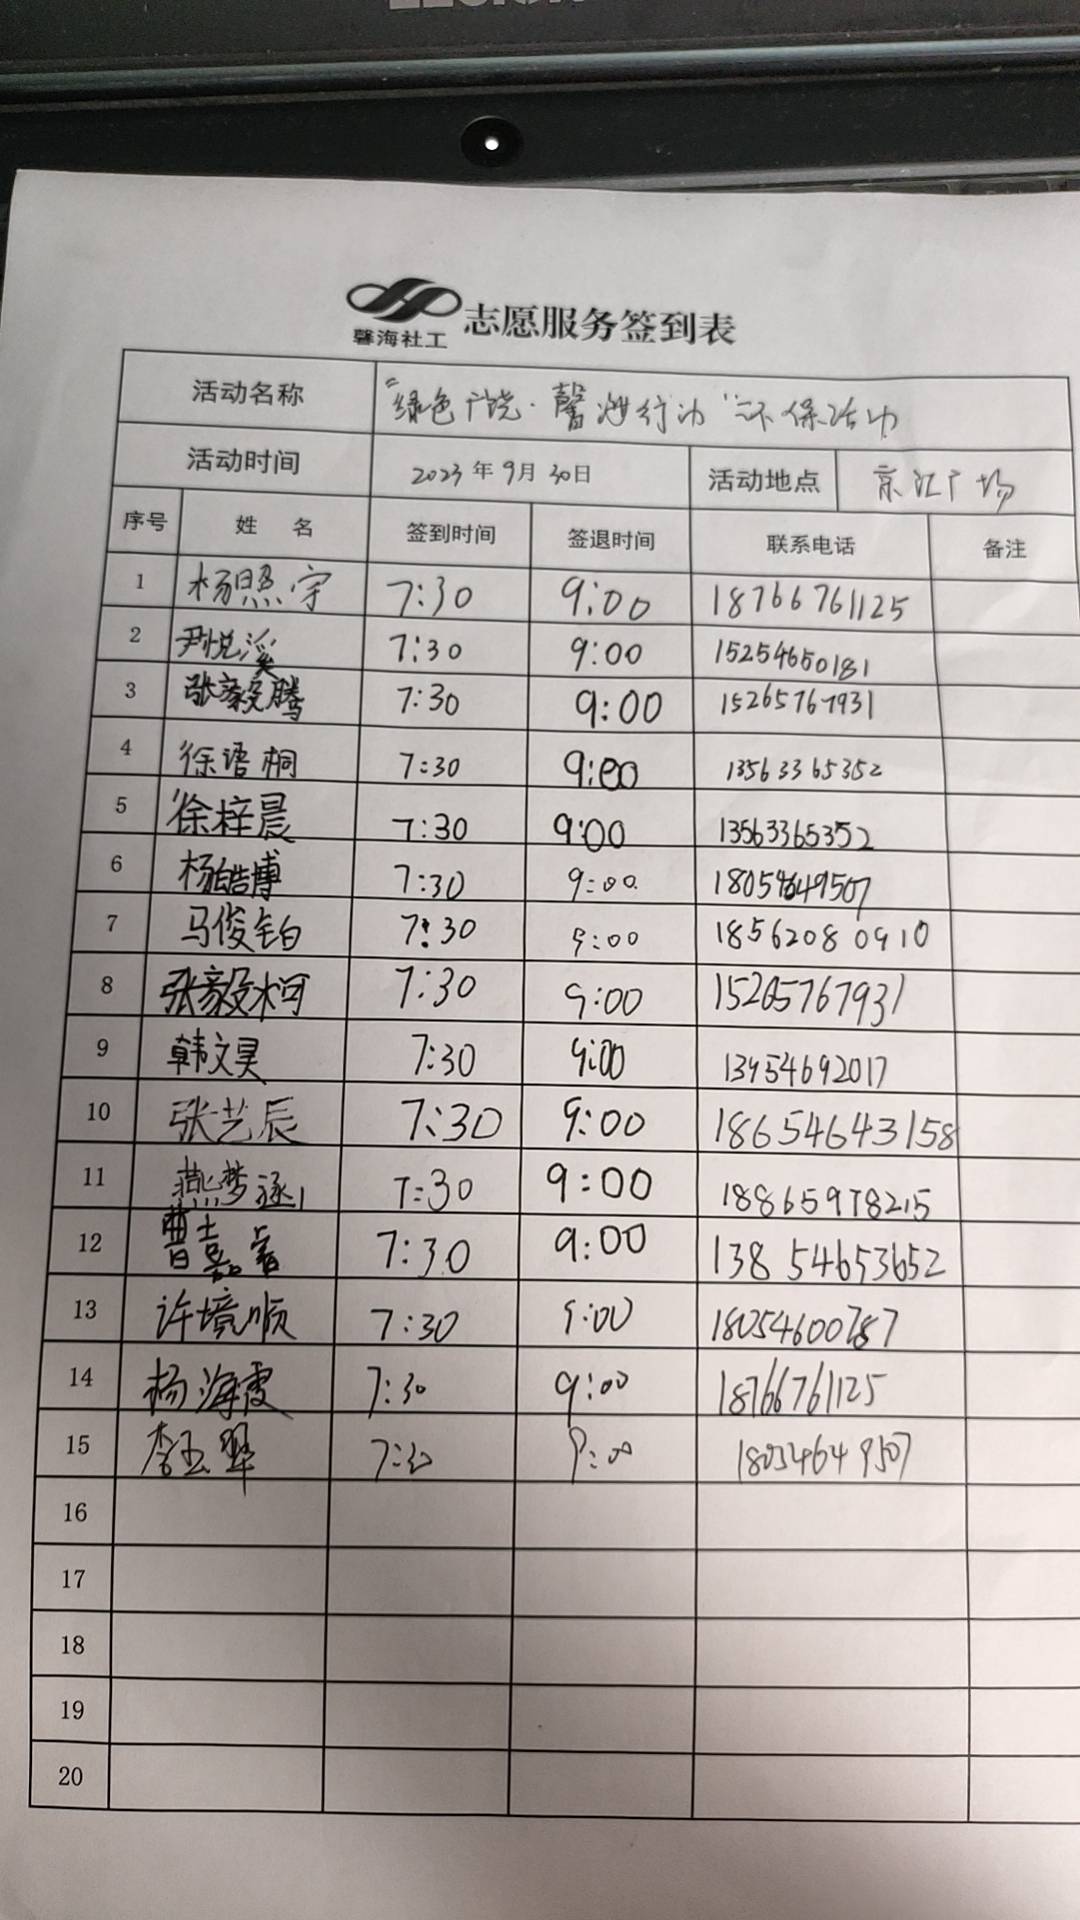 馨海社工 志愿服务签到表
活动名称 "绿色广饶·馨海行动"环保活动
活动时间 2023年9月30日 活动地点 京汇广场
序号 姓 名 签到时间 签退时间 联系电话 备注
1 杨照宇 7:30 9:00 18766761125
2 尹悦溪 7:30 9:00 15254650181
3 张毅腾 7:30 9:00 15265767931
4 徐语桐 7:30 9:00 13563365352
5 徐梓晨 7:30 9:00 13563365352
6 杨皓博 7:30 9:00 18054649507
7 马俊铂 7:30 9:00 18562080910
8 张毅柯 7:30 9:00 15265767931
9 韩文昊 7:30 9:00 13954692017
10 张艺辰 7:30 9:00 18654643158
11 燕梦涵 7:30 9:00 18865978215
12 曹嘉睿 7:30 9:00 13854653652
13 许境顺 7:30 9:00 18054600787
14 杨海霞 7:30 9:00 18766761125
15 李玉翠 7:30 9:00 18054649507
16
17
18
19
20